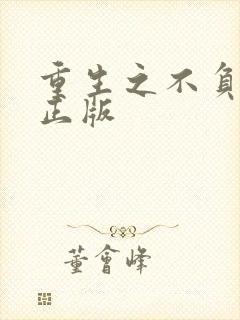 重生之不负
正版
董會峰